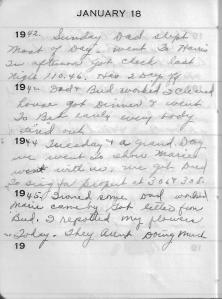 JANUARY 18
1942. Sunday Dad slept
most of Day. Went to Maries
in afternoon got clock last
night $10.46. His 2 Day off
194 Dad & Bud worked I cleaned
house got Dinner & went
to Bed early every body
tired out
1944 Tuesday & a grand Day
we went to show Marie
went with us. we got Dad
1945. Ironed some Dad worked
Marie came by Got letter from
Bud. I repotted my flowers
Today. They Arent Doing Much
19